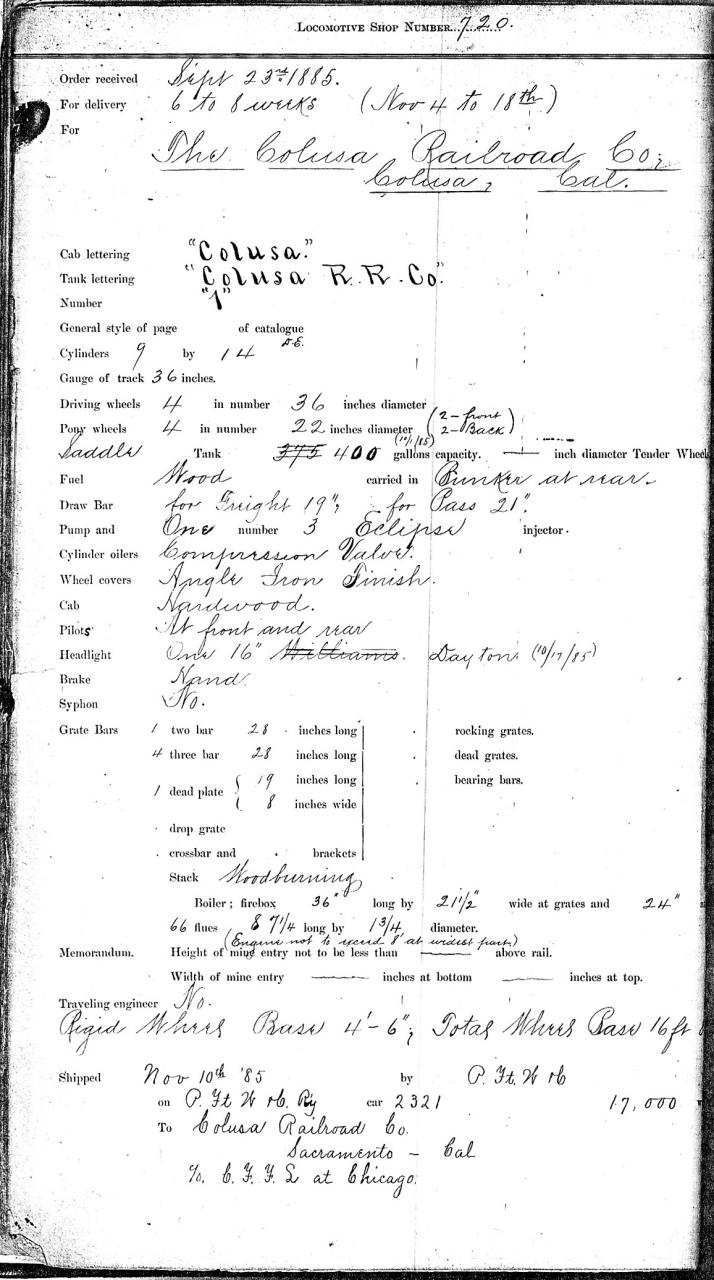 LOCOMOTIVE SHOP NUMBER 720.
Order received Sept 23rd 1885.
For delivery 6 to 8 weeks (Nov 4 to 18th)
For
The Colusa Railroad Co;
Colusa, Cal.
Cab lettering "Colusa."
Tank lettering "Colusa R.R.Co."
Number "1"
General style of page of catalogue
D.E.
Cylinders 9 by 14
Gauge of track 36 inches.
Driving wheels 4 in number 36 inches diameter
Pony wheels 4 in number 22 inches diameter (2-front 2-Back)
(10/1/85)
Saddle Tank 375 400 gallons capacity. — inch diameter Tender Wheel
Fuel Wood carried in Bunker at rear.
Draw Bar for Freight 19", for Pass 21".
Pump and One number 3 Eclipse injector.
Cylinder oilers Compression Valve.
Wheel covers Angle Iron Finish.
Cab Hardwood.
Pilots At front and rear
Headlight One 16" Williams. Dayton (10/17/85)
Brake Hand.
Syphon No.
Grate Bars 1 two bar 28 inches long rocking grates.
4 three bar 28 inches long dead grates.
1 dead plate { 19 inches long bearing bars.
8 inches wide
drop grate
crossbar and brackets
Stack Woodburning
Boiler; firebox 36" long by 21 1/2" wide at grates and 24"
66 flues 8 7 1/4 long by 1 3/4 diameter.
(Engine not to exceed 8' at widest part.)
Memorandum. Height of mine entry not to be less than — above rail.
Width of mine entry — inches at bottom — inches at top.
Traveling engineer No.
Rigid Wheel Base 4'-6"; Total Wheel Base 16ft
Shipped Nov 10th '85 by P. Ft. W &
on P. Ft. W & Ry car 2321 17,000
To Colusa Railroad Co.
Sacramento - Cal
c/o. C.F.F.L at Chicago.